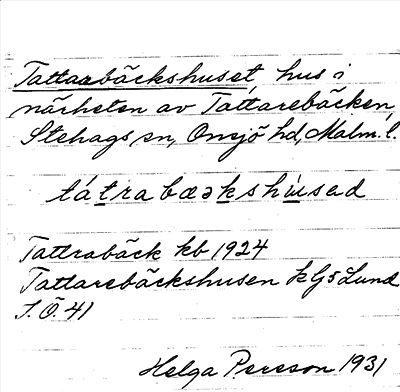 Tattarebäckshuset, hus i
närheten av Tattarebäcken,
Stehags sn, Onsjö hd, Malm. l.
tátrabæəkshúsəd
Tattrabäck kb 1924
Tattarebäckshusen k Gs Lund
S.Ö. 41
Helga Persson 1931